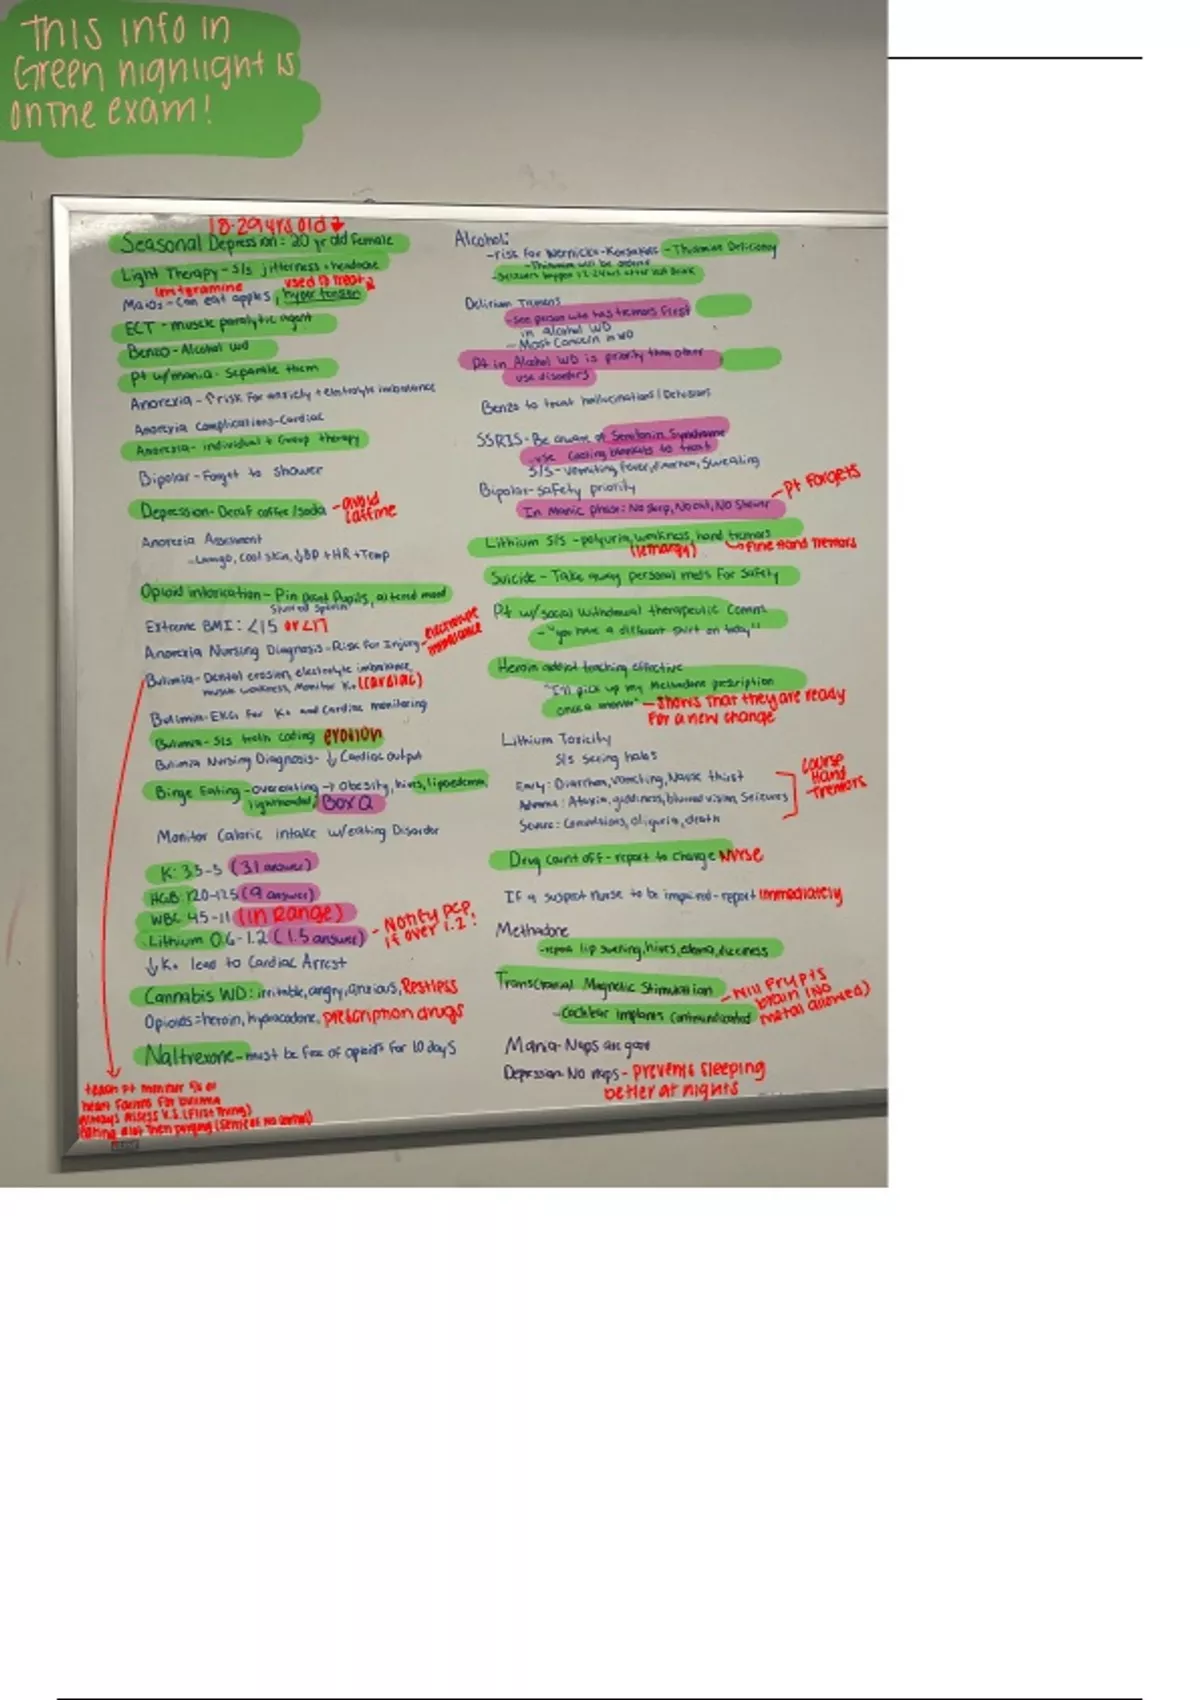 THIS INFO IN
Green highlight is
on the exam!
18-29 yrs old
Seasonal Depression: 20 yr old female
Light Therapy - S/s jitterness + headache
used to treat
Maois - Can eat apples, hypertension
ECT - muscle paralytic agent
Benzo - Alcohol WD
Pt w/mania - Separate them
Anorexia - ↑ risk for anxiety + electrolyte imbalance
Anorexia Complications - Cardiac
Anorexia - individual + Group therapy
Bipolar - Forget to shower
Depression - Decaf coffee/soda - avoid caffine
Anorexia Assessment
- Lanugo, cool skin, ↓BP + HR + Temp
Opioid intoxication - Pin point Pupils, altered mood
Slurred speech
Extreme BMI: <15 or <17
Anorexia Nursing Diagnosis - Risk For Injury - electrolyte imbalance
Bulimia - Dental erosion, electrolyte imbalance,
muscle weakness, Monitor K+ (cardiac)
Bulimia - EKGs for K+ and Cardiac monitoring
Bulimia - S/s teeth coding erosion
Bulimia Nursing Diagnosis - ↓ Cardiac output
Binge Eating - overeating → obesity, hives, lipoedema,
lightheaded, Box Q
Monitor Caloric intake w/eating Disorder
K: 3.5-5 (3.1 answer)
HGB: 12.0-12.5 (9 answer)
WBC 4.5-11 (in Range)
Lithium 0.6-1.2 (1.5 answer) - Notify PCP if over 1.2!
↓K+ lead to Cardiac Arrest
Cannabis WD: irritable, angry, anxious, Restless
Opioids = heroin, hydrocodone, prescription drugs
Naltrexone - must be free of opioids for 10 days
teach pt monitor S/s of
heart
for bulimia
Always Assess V.S. (First Thing)
Eating a lot then purging (sense of no control)
Alcohol:
- risk for Wernicke-Korsakoff - Thiamine Deficiency
- Thiamine will be ordered
- Seizures happen 12-24 hrs after last drink
Delirium Tremens
- See person who has tremors first
in alcohol WD
- Most Concern in WD
Pt in Alcohol WD is priority than other
use disorders
Benzo to treat hallucinations/Delusions
SSRIS - Be aware of Serotonin Syndrome
- use Cooling blankets to treat
S/S - vomiting, Fever, diarrhea, Sweating
Bipolar - safety priority
In Manic phase: No sleep, No eat, No Shower - Pt forgets
Lithium S/s - polyuria, weakness, hand tremors
(lethargy) Fine Hand Tremors
Suicide - Take away personal meds for safety
Pt w/social withdrawal therapeutic comm.
- "you have a different shirt on today"
Heroin addict teaching effective
"I'll pick up my Methadone prescription
once a month" - Shows that they are ready for a new change
Lithium Toxicity
S/s Seeing halos
Early: Diarrhea, vomiting, Nause thirst
Advance: Ataxia, giddiness, blurred vision, Seizures
Severe: Convulsions, oliguria, death
Course Hand Tremors
Drug count off - report to charge Nurse
If a suspect nurse to be impaired - report immediately
Methadone
- report lip swelling, hives, edema, dizziness
Transcranial Magnetic Stimulation
- Will
brain (No metal allowed)
- Cochlear implants Contraindicated
Mania - Naps are good
Depression - No naps - prevents sleeping
better at nights